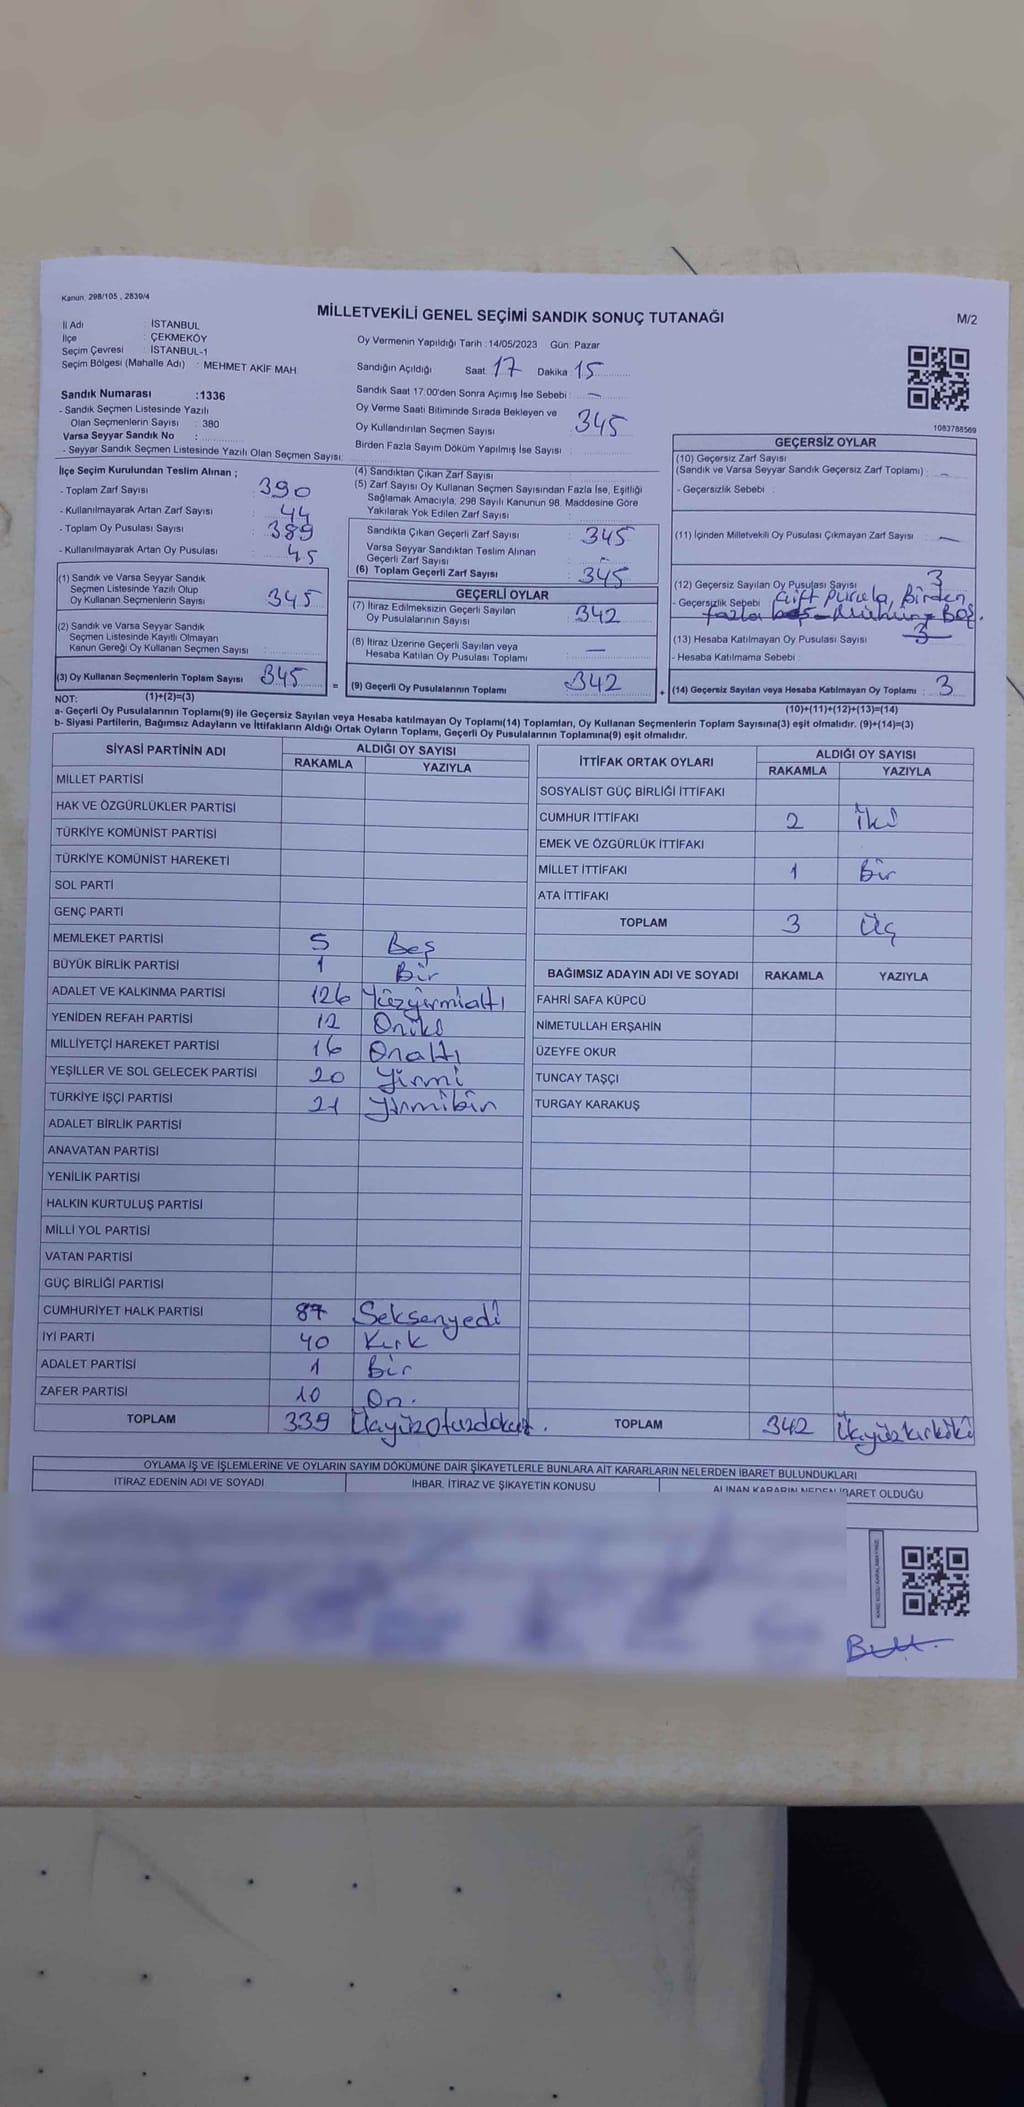 Kanun, 298/105 , 2839/4
MİLLETVEKİLİ GENEL SEÇİMİ SANDIK SONUÇ TUTANAĞI
M/2
İl Adı : İSTANBUL
İlçe : ÇEKMEKÖY
Seçim Çevresi : İSTANBUL-1
Seçim Bölgesi (Mahalle Adı) : MEHMET AKİF MAH
Sandık Numarası :1336
- Sandık Seçmen Listesinde Yazılı
Olan Seçmenlerin Sayısı : 380
Varsa Seyyar Sandık No :
- Seyyar Sandık Seçmen Listesinde Yazılı Olan Seçmen Sayısı:
Oy Vermenin Yapıldığı Tarih :14/05/2023 Gün: Pazar
Sandığın Açıldığı Saat: 17 Dakika 15
Sandık Saat 17:00'den Sonra Açımış İse Sebebi : —
Oy Verme Saati Bitiminde Sırada Bekleyen ve
Oy Kullandırılan Seçmen Sayısı : 345
Birden Fazla Sayım Döküm Yapılmış İse Sayısı :
1083788569
İlçe Seçim Kurulundan Teslim Alınan ;
- Toplam Zarf Sayısı 390
- Kullanılmayarak Artan Zarf Sayısı 44
- Toplam Oy Pusulası Sayısı 389
- Kullanılmayarak Artan Oy Pusulası 45
(1) Sandık ve Varsa Seyyar Sandık
Seçmen Listesinde Yazılı Olup
Oy Kullanan Seçmenlerin Sayısı 345
(2) Sandık ve Varsa Seyyar Sandık
Seçmen Listesinde Kayıtlı Olmayan
Kanun Gereği Oy Kullanan Seçmen Sayısı :
(3) Oy Kullanan Seçmenlerin Toplam Sayısı 345
(1)+(2)=(3)
(4) Sandıktan Çıkan Zarf Sayısı
(5) Zarf Sayısı Oy Kullanan Seçmen Sayısından Fazla İse, Eşitliği
Sağlamak Amacıyla, 298 Sayılı Kanunun 98. Maddesine Göre
Yakılarak Yok Edilen Zarf Sayısı :
Sandıkta Çıkan Geçerli Zarf Sayısı : 345
Varsa Seyyar Sandıktan Teslim Alınan
Geçerli Zarf Sayısı : —
(6) Toplam Geçerli Zarf Sayısı : 345
GEÇERLİ OYLAR
(7) İtiraz Edilmeksizin Geçerli Sayılan
Oy Pusulalarının Sayısı : 342
(8) İtiraz Üzerine Geçerli Sayılan veya
Hesaba Katılan Oy Pusulası Toplamı : —
= (9) Geçerli Oy Pusulalarının Toplamı : 342 +
GEÇERSİZ OYLAR
(10) Geçersiz Zarf Sayısı
(Sandık ve Varsa Seyyar Sandık Geçersiz Zarf Toplamı) : —
- Geçersizlik Sebebi :
(11) İçinden Milletvekili Oy Pusulası Çıkmayan Zarf Sayısı : —
(12) Geçersiz Sayılan Oy Pusulası Sayısı : 3
- Geçersizlik Sebebi : Çift pusula, Birden
fazla mühür, Boş.
(13) Hesaba Katılmayan Oy Pusulası Sayısı : 3
- Hesaba Katılmama Sebebi :
(14) Geçersiz Sayılan veya Hesaba Katılmayan Oy Toplamı : 3
(10)+(11)+(12)+(13)=(14)
NOT:
a- Geçerli Oy Pusulalarının Toplamı(9) ile Geçersiz Sayılan veya Hesaba katılmayan Oy Toplamı(14) Toplamları, Oy Kullanan Seçmenlerin Toplam Sayısına(3) eşit olmalıdır. (9)+(14)=(3)
b- Siyasi Partilerin, Bağımsız Adayların ve İttifakların Aldığı Ortak Oyların Toplamı, Geçerli Oy Pusulalarının Toplamına(9) eşit olmalıdır.
SİYASİ PARTİNİN ADI ALDIĞI OY SAYISI
RAKAMLA YAZIYLA
MİLLET PARTİSİ
HAK VE ÖZGÜRLÜKLER PARTİSİ
TÜRKİYE KOMÜNİST PARTİSİ
TÜRKİYE KOMÜNİST HAREKETİ
SOL PARTİ
GENÇ PARTİ
MEMLEKET PARTİSİ 5 Beş
BÜYÜK BİRLİK PARTİSİ 1 Bir
ADALET VE KALKINMA PARTİSİ 126 Yüzyirmialtı
YENİDEN REFAH PARTİSİ 12 Oniki
MİLLİYETÇİ HAREKET PARTİSİ 16 Onaltı
YEŞİLLER VE SOL GELECEK PARTİSİ 20 Yirmi
TÜRKİYE İŞÇİ PARTİSİ 21 Yirmibir
ADALET BİRLİK PARTİSİ
ANAVATAN PARTİSİ
YENİLİK PARTİSİ
HALKIN KURTULUŞ PARTİSİ
MİLLİ YOL PARTİSİ
VATAN PARTİSİ
GÜÇ BİRLİĞİ PARTİSİ
CUMHURİYET HALK PARTİSİ 87 Seksenyedi
İYİ PARTİ 40 Kırk
ADALET PARTİSİ 1 Bir
ZAFER PARTİSİ 10 On.
TOPLAM 339 Üçyüzotuzdokuz.
İTTİFAK ORTAK OYLARI ALDIĞI OY SAYISI
RAKAMLA YAZIYLA
SOSYALİST GÜÇ BİRLİĞİ İTTİFAKI
CUMHUR İTTİFAKI 2 İki
EMEK VE ÖZGÜRLÜK İTTİFAKI
MİLLET İTTİFAKI 1 Bir
ATA İTTİFAKI
TOPLAM 3 Üç
BAĞIMSIZ ADAYIN ADI VE SOYADI RAKAMLA YAZIYLA
FAHRİ SAFA KÜPCÜ
NİMETULLAH ERŞAHİN
ÜZEYFE OKUR
TUNCAY TAŞÇI
TURGAY KARAKUŞ
TOPLAM 342 Üçyüzkırkiki
OYLAMA İŞ VE İŞLEMLERİNE VE OYLARIN SAYIM DÖKÜMÜNE DAİR ŞİKAYETLERLE BUNLARA AİT KARARLARIN NELERDEN İBARET BULUNDUKLARI
İTİRAZ EDENİN ADI VE SOYADI İHBAR, İTİRAZ VE ŞİKAYETİN KONUSU ALINAN KARARIN NEDEN İBARET OLDUĞU
KARE KODU KARALAMAYINIZ